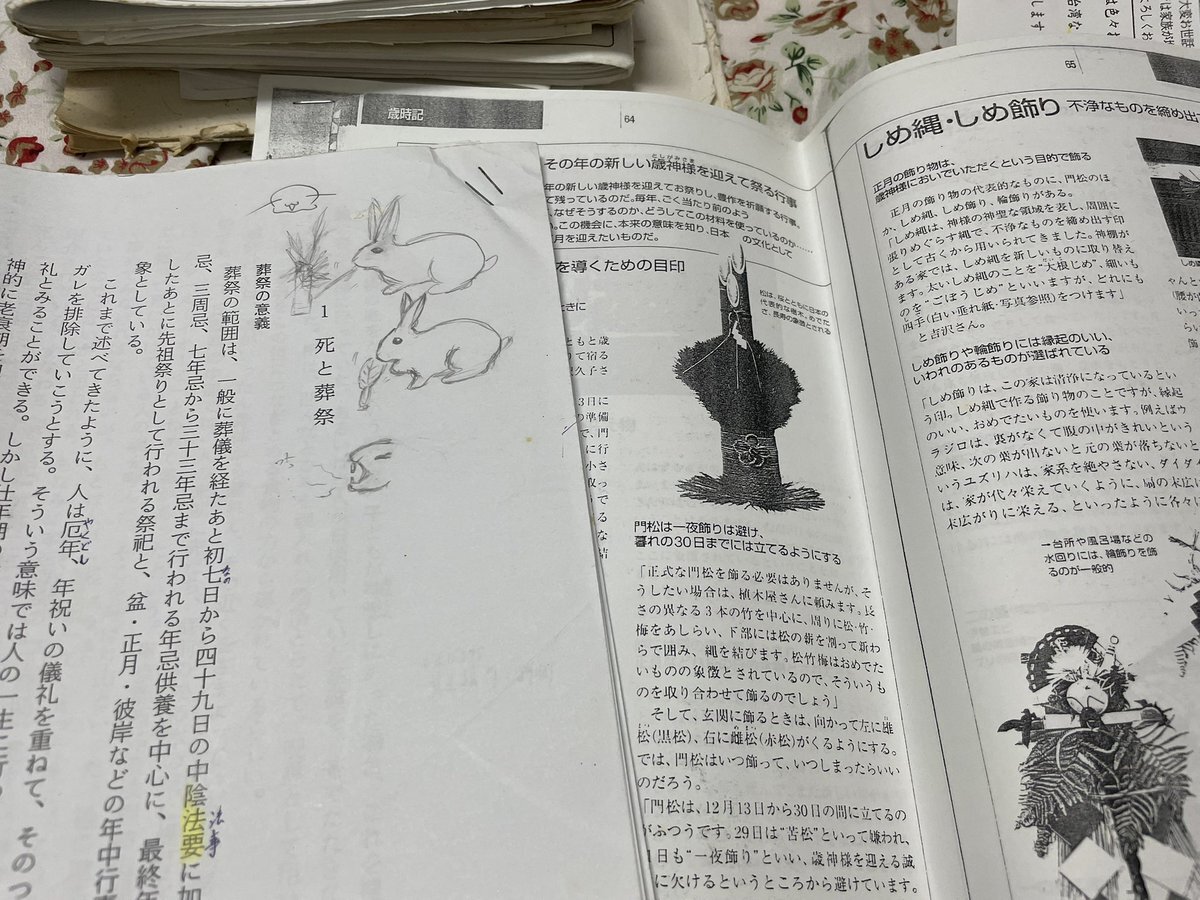 大変お世話
は色々
台湾な
ろしくお
は家族が
します
歳時記
64
その年の新しい歳神様を迎えて祭る行事
年の新しい歳神様を迎えてお祭りし、豊作を祈願する行事。
て残っているのだ。毎年、ごく当たり前のよう
なぜそうするのか、どうしてこの材料を使っているのか……
。この機会に、本来の意味を知り、日本 の文化として
月を迎えたいものだ。
を導くための目印
松は、桜とともに日本の
代表的な樹木。めでた
さ、長寿の象徴とされる
門松は一夜飾りは避け、
暮れの30日までには立てるようにする
「正式な門松を飾る必要はありませんが、そ
うしたい場合は、植木屋さんに頼みます。長
さの異なる3本の竹を中心に、周りに松・竹・
梅をあしらい、下部には松の薪を割って新わ
らで囲み、縄を結びます。松竹梅はおめでた
いものの象徴とされているので、そういうも
のを取り合わせて飾るのでしょう」
そして、玄関に飾るときは、向かって左に雄
松(黒松)、右に雌松(赤松)がくるようにする。
では、門松はいつ飾って、いつしまったらいい
のだろう。
「門松は、12月13日から30日の間に立てるの
がふつうです。29日は“苦松”といって嫌われ、
1日も“一夜飾り”といい、歳神様を迎える誠
に欠けるというところから避けています。
65
しめ縄・しめ飾り 不浄なものを締め出す
正月の飾り物は、
歳神様においでいただくという目的で飾る
正月の飾り物の代表的なものに、門松のほ
か、しめ縄、しめ飾り、輪飾りがある。
「しめ縄は、神様の神聖な領域を表し、周囲に
張りめぐらす縄で、不浄なものを締め出す印
として古くから用いられてきました。神棚が
ある家では、しめ縄を新しいものに取り替え
ます。太いしめ縄のことを“大根じめ”、細いも
のを“ごぼうじめ”といいますが、どれにも
四手(白い垂れ紙・写真参照)をつけます」
と吉沢さん。
しめ飾りや輪飾りには縁起のいい、
いわれのあるものが選ばれている
「しめ飾りは、この家は清浄になっているとい
う印。しめ縄で作る飾り物のことですが、縁起
のいい、おめでたいものを使います。例えばウ
ラジロは、裏がなくて腹の中がきれいという
意味、次の葉が出ないと元の葉が落ちないと
いうユズリハは、家系を絶やさない、ダイダイ
は、家が代々栄えていくように、扇の末広は
末広がりに栄える、といったように各々
→台所や風呂場などの
水回りには、輪飾りを飾
るのが一般的
1 死と葬祭
葬祭の意義
葬祭の範囲は、一般に葬儀を経たあと初七日から四十九日の中陰法要に加
なの
法事
忌、三周忌、七年忌から三十三年忌まで行われる年忌供養を中心に、最終年
したあとに先祖祭りとして行われる祭祀と、盆・正月・彼岸などの年中行
象としている。
これまで述べてきたように、人は厄年、年祝いの儀礼を重ねて、そのつ
やくどし
ガレを排除していこうとする。そういう意味では人の一生に行
礼とみることができる。しかし壮年期
神的に老衰期